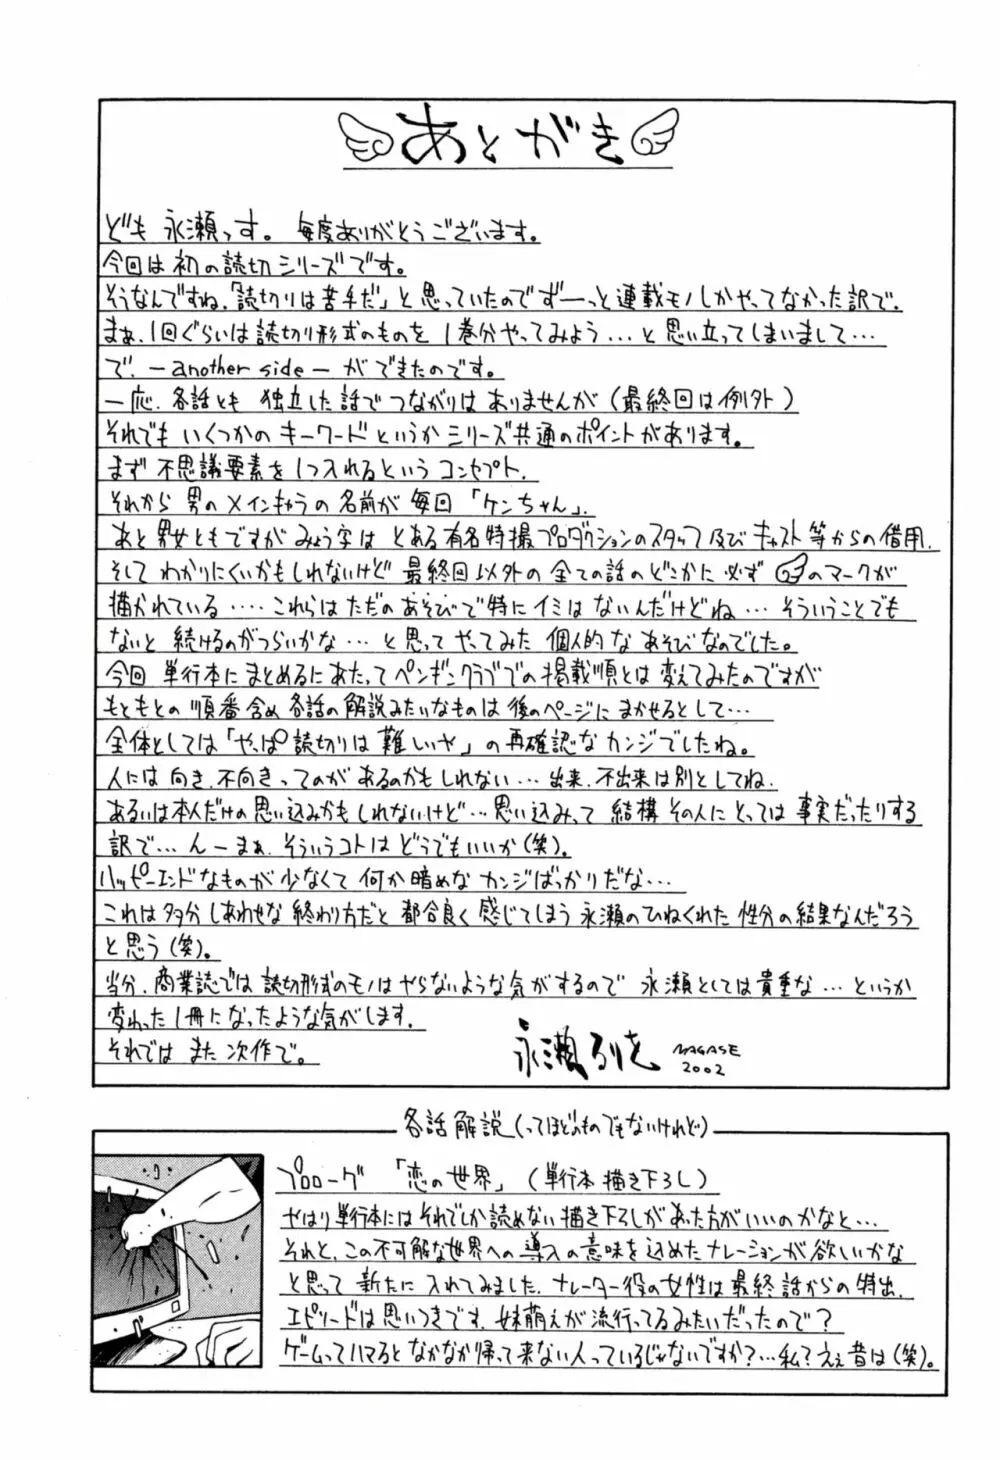 あとがき
ども 永瀬っす。毎度ありがとうございます。
今回は初の読切シリーズです。
そうなんですね、「読切りは苦手だ」と思っていたのでず——っと連載モノしかやってなかった訳で、
まぁ、1回ぐらいは読切り形式のものを1巻分やってみよう…と思い立ってしまいまして…
で、—another side—ができたのです。
一応、各話とも 独立した話でつながりはありませんが(最終回は例外)
それでも いくつかのキーワードというかシリーズ共通のポイントがあります。
まず不思議要素を1つ入れるというコンセプト、
それから男のメインキャラの名前が毎回「ケンちゃん」、
あと男女ともですがみょう字は とある有名特撮プロダクションのスタッフ及びキャスト等からの借用、
そして わかりにくいかもしれないけど 最終回以外の全ての話のどこかに必ず のマークが
描かれている‥‥これらはただのあそびで特にイミはないんだけどね…そういうことでも
ないと続けるのがつらいかな…と思ってやってみた 個人的なあそびなのでした。
今回 単行本にまとめるにあたってペンギンクラブでの掲載順とは変えてみたのですが
もともとの順番含め各話の解説みたいなものは後のページにまかせるとして…
全体としては「やっぱ読切りは難しいや」の再確認なカンジでしたね。
人には向き、不向きってのがあるのかもしれない…出来、不出来は別としてね、
あるいは本人だけの思い込みかもしれないけど…思い込みって 結構その人にとっては事実だったりする
訳で…んーまぁ、そういうコトはどうでもいいか(笑)。
ハッピーエンドなものが少なくて何か暗めなカンジばっかりだな…
これは多分しあわせな終わり方だと都合良く感じてしまう永瀬のひねくれた性分の結果なんだろう
と思う(笑)。
当分、商業誌では読切形式のモノはやらないような気がするので 永瀬としては貴重な…というか
変わった1冊になったような気がします。
それでは また次作で。
永瀬るりを NAGASE 2002
各話解説(ってほどのものでもないけれど)
プロローグ 「恋の世界」(単行本描き下ろし)
やはり単行本にはそれでしか読めない描き下ろしがあった方がいいのかなと…
それと、この不可解な世界への導入の意味を込めたナレーションが欲しいかな
と思って新たに入れてみました、ナレーター役の女性は最終話からの特出、
エピソードは思いつきです、妹萌えが流行ってるみたいだったので?
ゲームってハマるとなかなか帰って来ない人っているじゃないですか?…私?ええ昔は(笑)。